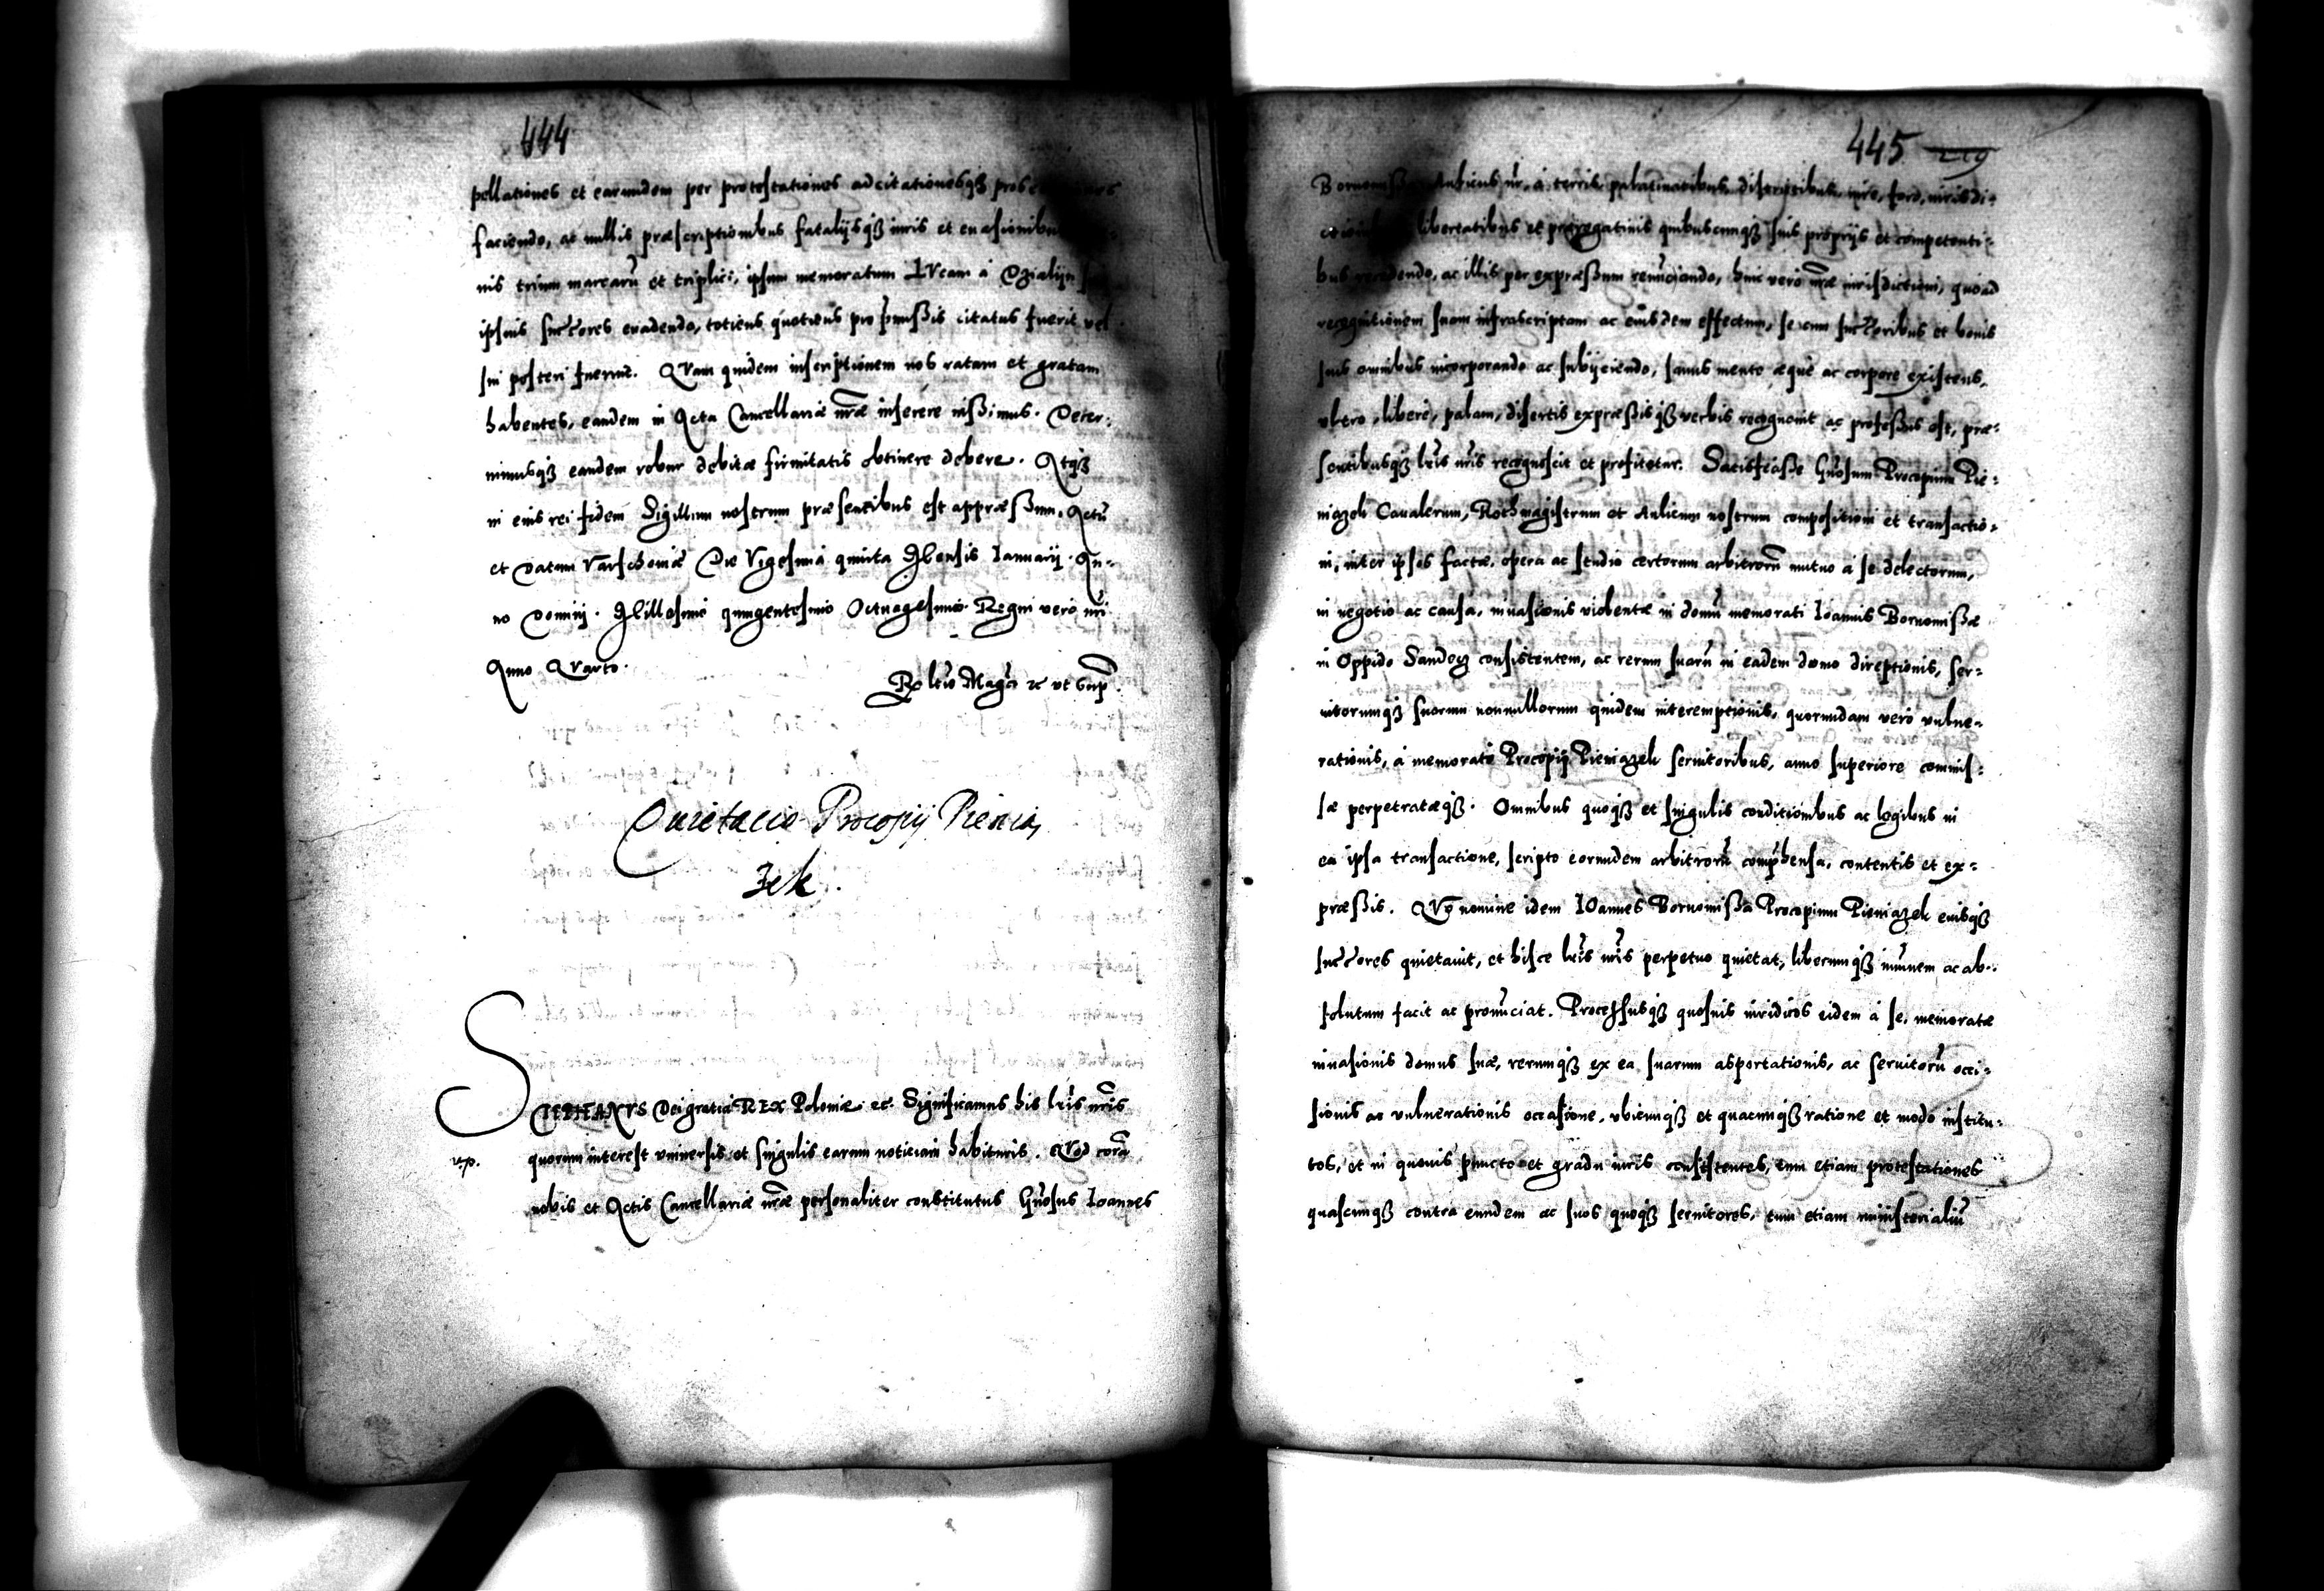 444
pellationes et earundem per protestationes adcitationesqȝ
faciendo, ac nullis præscriptionibus fatalijsqȝ iuris et euasionibus
nis trium marcarū et triplici, ipsum memoratum LVcam à Dzialijn
ipsius succ̄ores euadendo, totiens quotiens pro p̄missis citatus fuerit vel
sui posteri fuerint. QVam quidem inscriptionem nos ratam et gratam
habentes, eandem in Acta Cancellariæ n̄ræ inserere iussimus. Deter:
minusqȝ eandem robur debitæ firmitatis obtinere debere. Atqȝ
in eius rei fidem Sigillum nostrum præsentibus est appræssum. Actū
et Datum Varschouiæ Die Vigesima quinta Mensis Ianuarij. An-
no Domini. Millesimo quingentesimo Octuagesimo. Regni vero nr̄i
Anno QVarto.
Rō ltio Magci ꝛc vt Supˢ.
Quietacio Procopij Pienią
zek.
STEPHANVS Dei gratia REX Poloniæ. ec. Significamus his lr̄is nr̄is
v.p.
quorum interest vniuersis et singulis earum notitiam habituris. QVod corā
nobis et Actis Cancellariæ nr̄æ personaliter constitutus Gn̄osus Ioannes
445 219
Aulicus nr̄, à terris, palatinatibus, districtibus, iure, foro, iurisdi:
libertatibus et prærogatiuis quibuscunqȝ suis proprijs et competenti:
bus recedendo, ac illis per expræssum renūciando, huic vero nr̄æ iurisdictioni, quoad
recognitionem suam infrascriptam ac eiusdem effectum, se cum succ̄oribus et bonis
suis omnibus incorporando ac subijciendo, sanus mente æquè ac corpore existens,
vltro, liberè, palam, disertis expræssisqȝ verbis recognouit ac professus est, præ:
sentibusqȝ lr̄is nr̄is recognoscit et profitetur. Satisfcisse Gn̄osum Procopium Pie:
niązek Caualerum, Rothmagistrum et Aulicum nostrum compositioni et transactio:
ni, inter ipsos factæ, opera ac studio certorum arbitrorū mutuo à se delectorum,
in negotio ac causa, inuasionis violentæ in domū memorati Ioannis Bornomissæ
in Oppido Sandecz consistentem, ac rerum suarū in eadem domo direptionis, ser:
uitorumqȝ suorum nonnullorum quidem interemptionis, quorundam vero vulne:
rationis, à memorato Procopij Pieniązek seruitoribus, anno superiore commis:
sæ perpetratæqȝ. Omnibus quoqȝ et singulis conditionibus ac legibus in
ea ipsa transactione, scripto eorundem arbitrorū comp̄hensa, contentis et ex:
præssis. QVo nomine idem IOannes Bornomissa Procopium Pieniązek eiusqȝ
succ̄ores quietauit, et hisce lr̄is nr̄is perpetuo quietat, liberumqȝ immunem ac ab:
solutum facit ac pronūciat. Processusqȝ quosuis iuridicos eidem à se, memoratæ
inuasionis domus suæ, rerumqȝ ex ea suarum asportationis, ac seruitorū occi:
sionis ac vulnerationis occasione, vbicunqȝ et quacunqȝ ratione et modo institu:
tos, et in quouis puncto et gradu iuris consistentes, cum etiam protestationes
quascunqȝ contra eundem ac suos quoqȝ seruitores, tum etiam ministerialiū